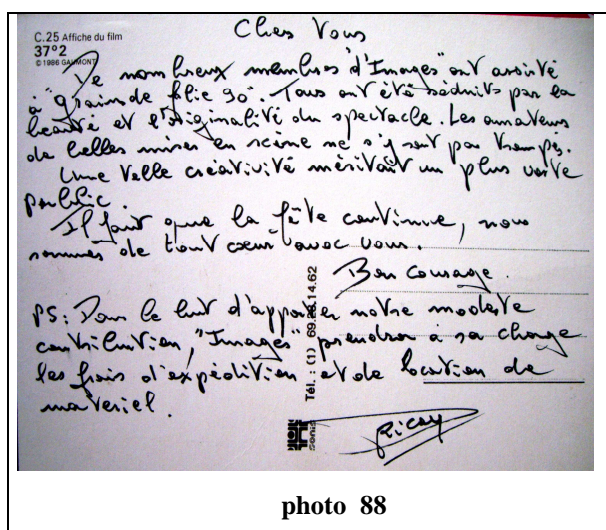 C.25 Affiche du film
37°2
© 1986 GAUMONT
Chers Vous
De nombreux membres d'"Images" ont assisté
à "grain de folie 90". Tous ont été séduits par la
beauté et l'originalité du spectacle. Les amateurs
de belles mises en scène ne s'y sont pas trompés.
Une telle créativité méritait un plus vaste
public.
Il faut que la fête continue, nous
sommes de tout cœur avec vous.
Bon courage.
PS: Dans le but d'apporter notre modeste
contribution, "Images" prendra à sa charge
les frais d'expédition et de location de
materiel.
Tél. : (1) 69.28.14.62
sonis
photo 88